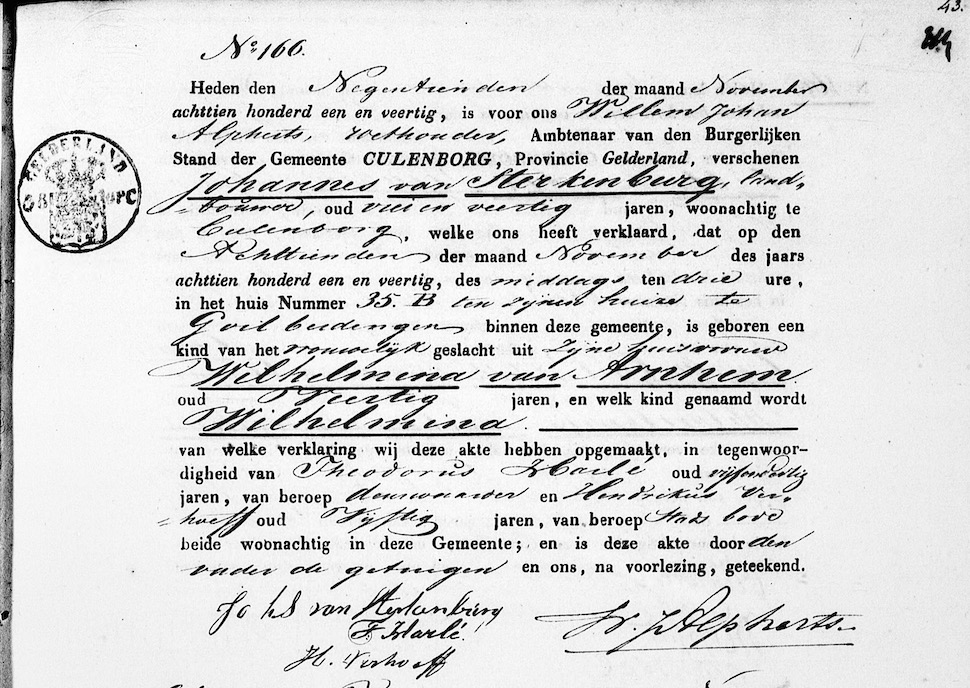 43.
No. 166.
Heden den Negentienden der maand November
achttien honderd een en veertig, is voor ons Willem Johan
Alpherts, Wethouder, Ambtenaar van den Burgerlijken
Stand der Gemeente CULENBORG, Provincie Gelderland, verschenen
GELDERLAND
Johannes van Sterkenburg, land,
=bouwer, oud vier en veertig jaren, woonachtig te
Culenborg, welke ons heeft verklaard, dat op den
Achttienden der maand November des jaars
achttien honderd een en veertig, des middags ten drie ure,
in het huis Nummer 35. B ten zijnen huize te
Goilberdingen binnen deze gemeente, is geboren een
kind van het vrouwelijk geslacht uit zijne huisvrouw
Wilhelmina van Arnhem.
oud Veertig jaren, en welk kind genaamd wordt
Wilhelmina.
van welke verklaring wij deze akte hebben opgemaakt, in tegenwoor-
digheid van Theodorus Harlé oud vijfenveertig
jaren, van beroep deurwaarder en Hendrikus Ver,
=hoeff oud Vijftig jaren, van beroep Stads bode
beide woonachtig in deze Gemeente; en is deze akte door den
vader de getuigen en ons, na voorlezing, geteekend.
Johs van Sterkenburg
T. Harlé
H. Verhoeff
W. J. Alpherts.